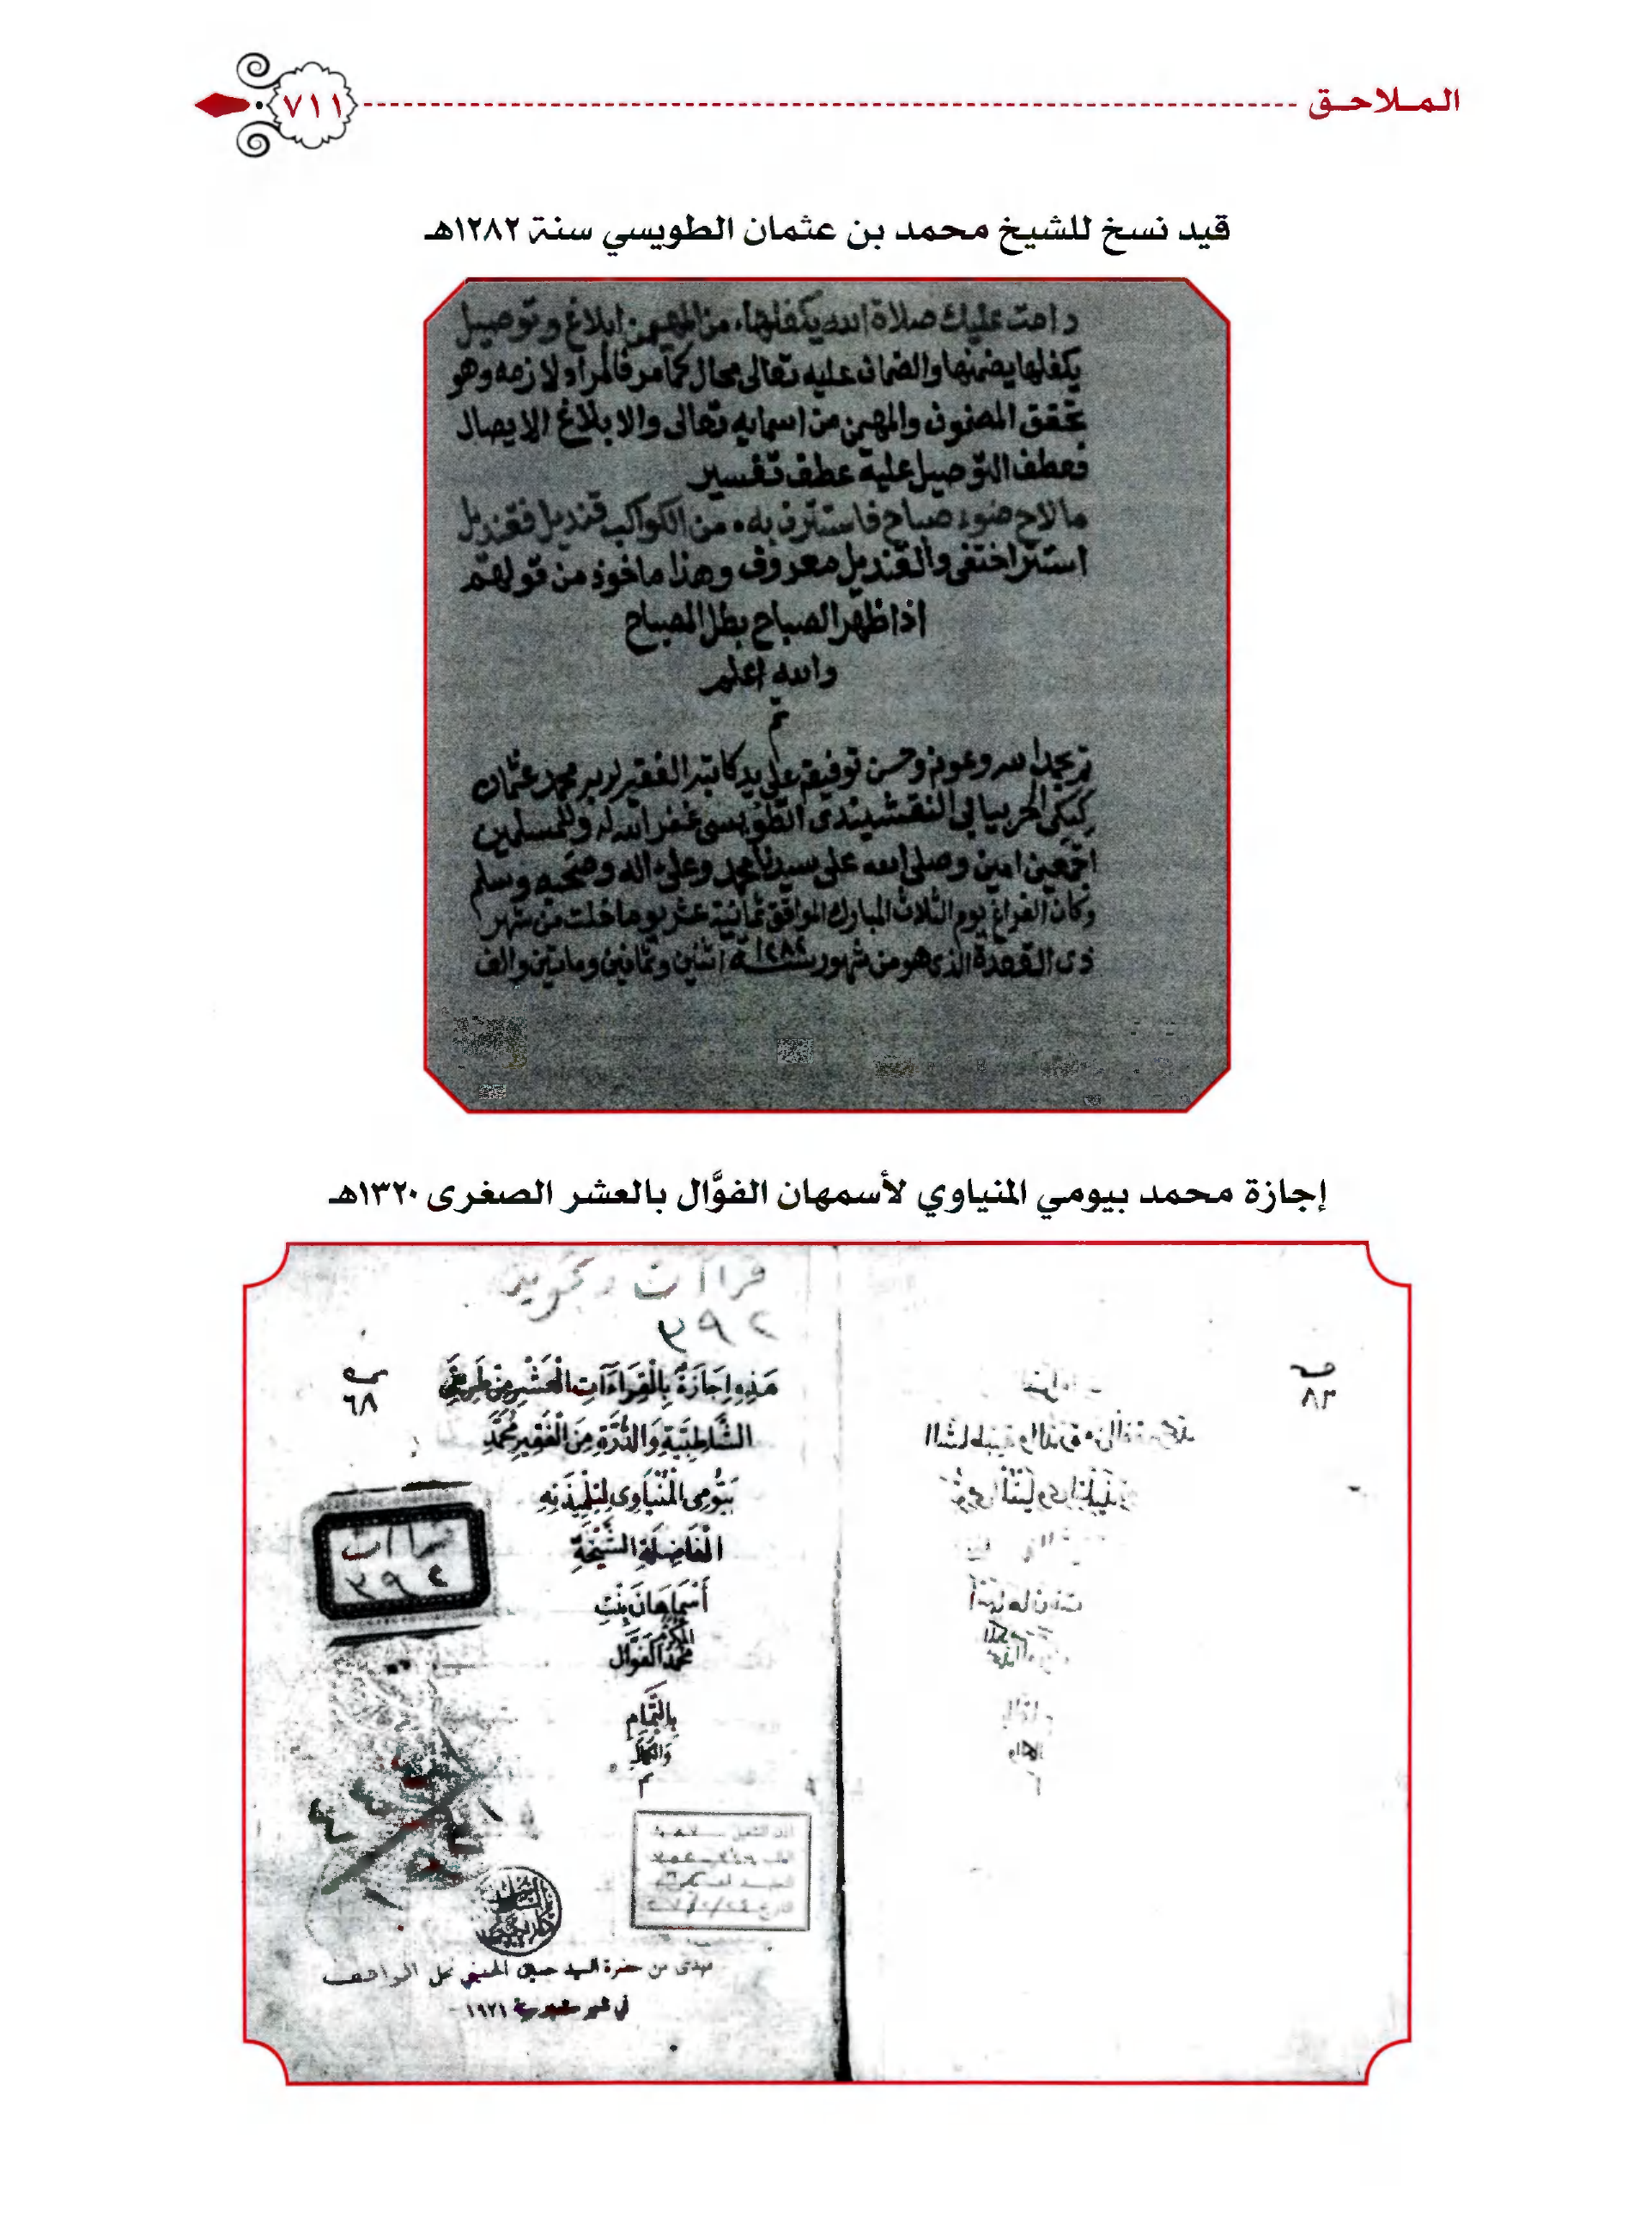 الملاحق
٧١١
قيد نسخ للشيخ محمد بن عثمان الطويسي سنة ١٢٨٢هـ
دامت عليك صلاة الله يكفلها من المهيمن ابلاغ وتوصيل
يكفلها يضمنها والضمان عليه تعالى محال كما مر فالمراد لازمه وهو
تحقق المضمون والمهيمن من اسمايه تعالى والابلاغ الايصال
فعطف التوصيل عليه عطف تفسير
ما لاح ضوء صباح فاستترن به من الكواكب قنديل فقنديل
استتر اختفى والقنديل معروف وهذا ماخوذ من قولهم
اذا ظهر الصباح بطل المصباح
والله اعلم
تم
تم بحمد الله وعونه وحسن توفيقه على يد كاتبه الفقير لربه محمد عثمان
النقشبندى الطويسى غفر الله له وللمسلمين
اجمعين امين وصلى الله على سيدنا محمد وعلى اله وصحبه وسلم
وكان الفراغ يوم الثلاث المبارك الموافق ثمانية عشر يوما خلت من شهر
ذى القعدة الذى هو من شهور سنة ١٢٨٢ اثنين وثمانين ومايتين والف
إجازة محمد بيومي المنياوي لأسمهان الفوَّال بالعشر الصغرى ١٣٢٠هـ
قراآت وتجويد
٢٩٣
هَذِهِ اِجَازَةٌ بِالْقِرَاءَاتِ الْعَشْرِ مِنْ طَرِيقَيِ
٦٨
الشَّاطِبِيَّةِ وَالدُّرَّةِ مِنَ الْفَقِيرِ مُحَمَّدْ
بَيُّومِى الْمُنْيَاوِى لِتِلْمِيذَتِهِ
الْفَاضِلَةِ الشَّيْخَةِ
أَسْمَاهَانَ بِنْتِ
الْمُكَرَّمِ
مُحَمَّدْ الْفَوَّالْ
بِالتَّمَامِ
وَالْكَمَالِ
م
قراآت
٢٩٣
مهدى من حضرة السيد الحسيني نجل الواقف
في شهر سنة ١٩٢١